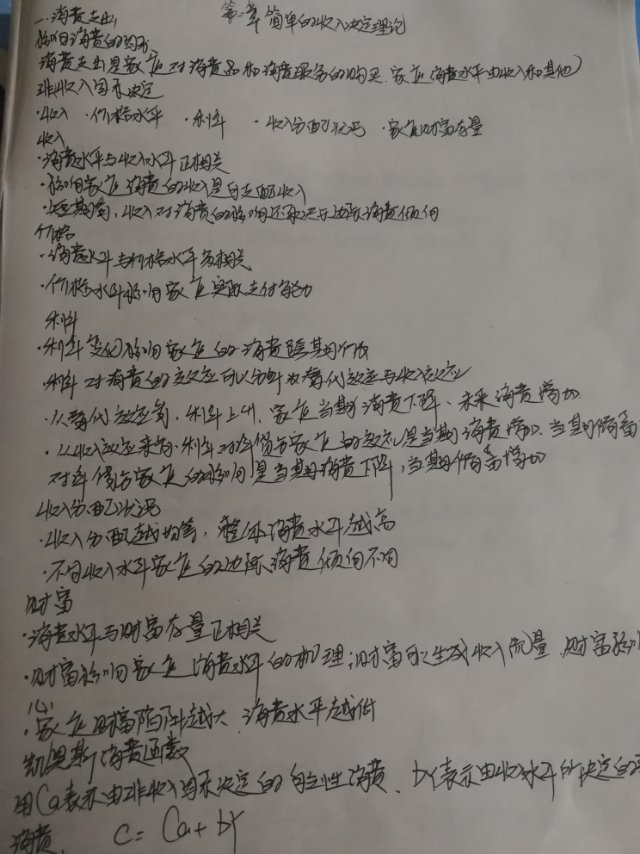 第二章 简单的收入决定理论
一.消费支出
影响消费的因素
消费支出是家庭对消费品和消费服务的购买.家庭消费水平由收入和其他
非收入因素决定
·收入 ·价格水平 ·利率 ·收入分配状况 ·家庭财富存量
收入
·消费水平与收入水平正相关
·影响家庭消费的收入是可支配收入
·短期内,收入对消费的影响还取决于边际消费倾向
价格
·消费水平与价格水平负相关
·价格水平影响家庭实际支付能力
利率
·利率变化影响家庭的消费跨期
·利率对消费的效应可以分解为替代效应与收入效应
·从替代效应看,利率上升,家庭当期消费下降、未来消费增加.
·从收入效应来看,利率对净贷方家庭的效应是当期消费增加,当期储蓄
对净借方家庭的影响是当期消费下降,当期储蓄增加
收入分配状况
·收入分配越均等,整体消费水平越高
·不同收入水平家庭的边际消费倾向不同
财富
·消费水平与财富存量正相关
·财富影响家庭消费水平的机理:财富可以生成收入流量.财富影响
心
·家庭财富 越大,消费水平越低
凯恩斯消费函数
用Ca表示由非收入因素决定的自主性消费、bY表示由收入水平所决定的
消费. C= Ca+bY